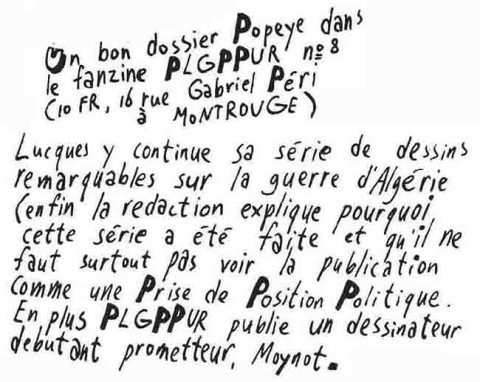 Un bon dossier Popeye dans
le fanzine PLGPPUR nº 8
(10 FR, 16 rue Gabriel Péri
à MONTROUGE)
Lucques y continue sa série de dessins
remarquables sur la guerre d'Algérie
(enfin la redaction explique pourquoi
cette série a été faite et qu'il ne
faut surtout pas voir la publication
comme une Prise de Position Politique.
En plus PLGPPUR publie un dessinateur
debutant prometteur, Moynot.